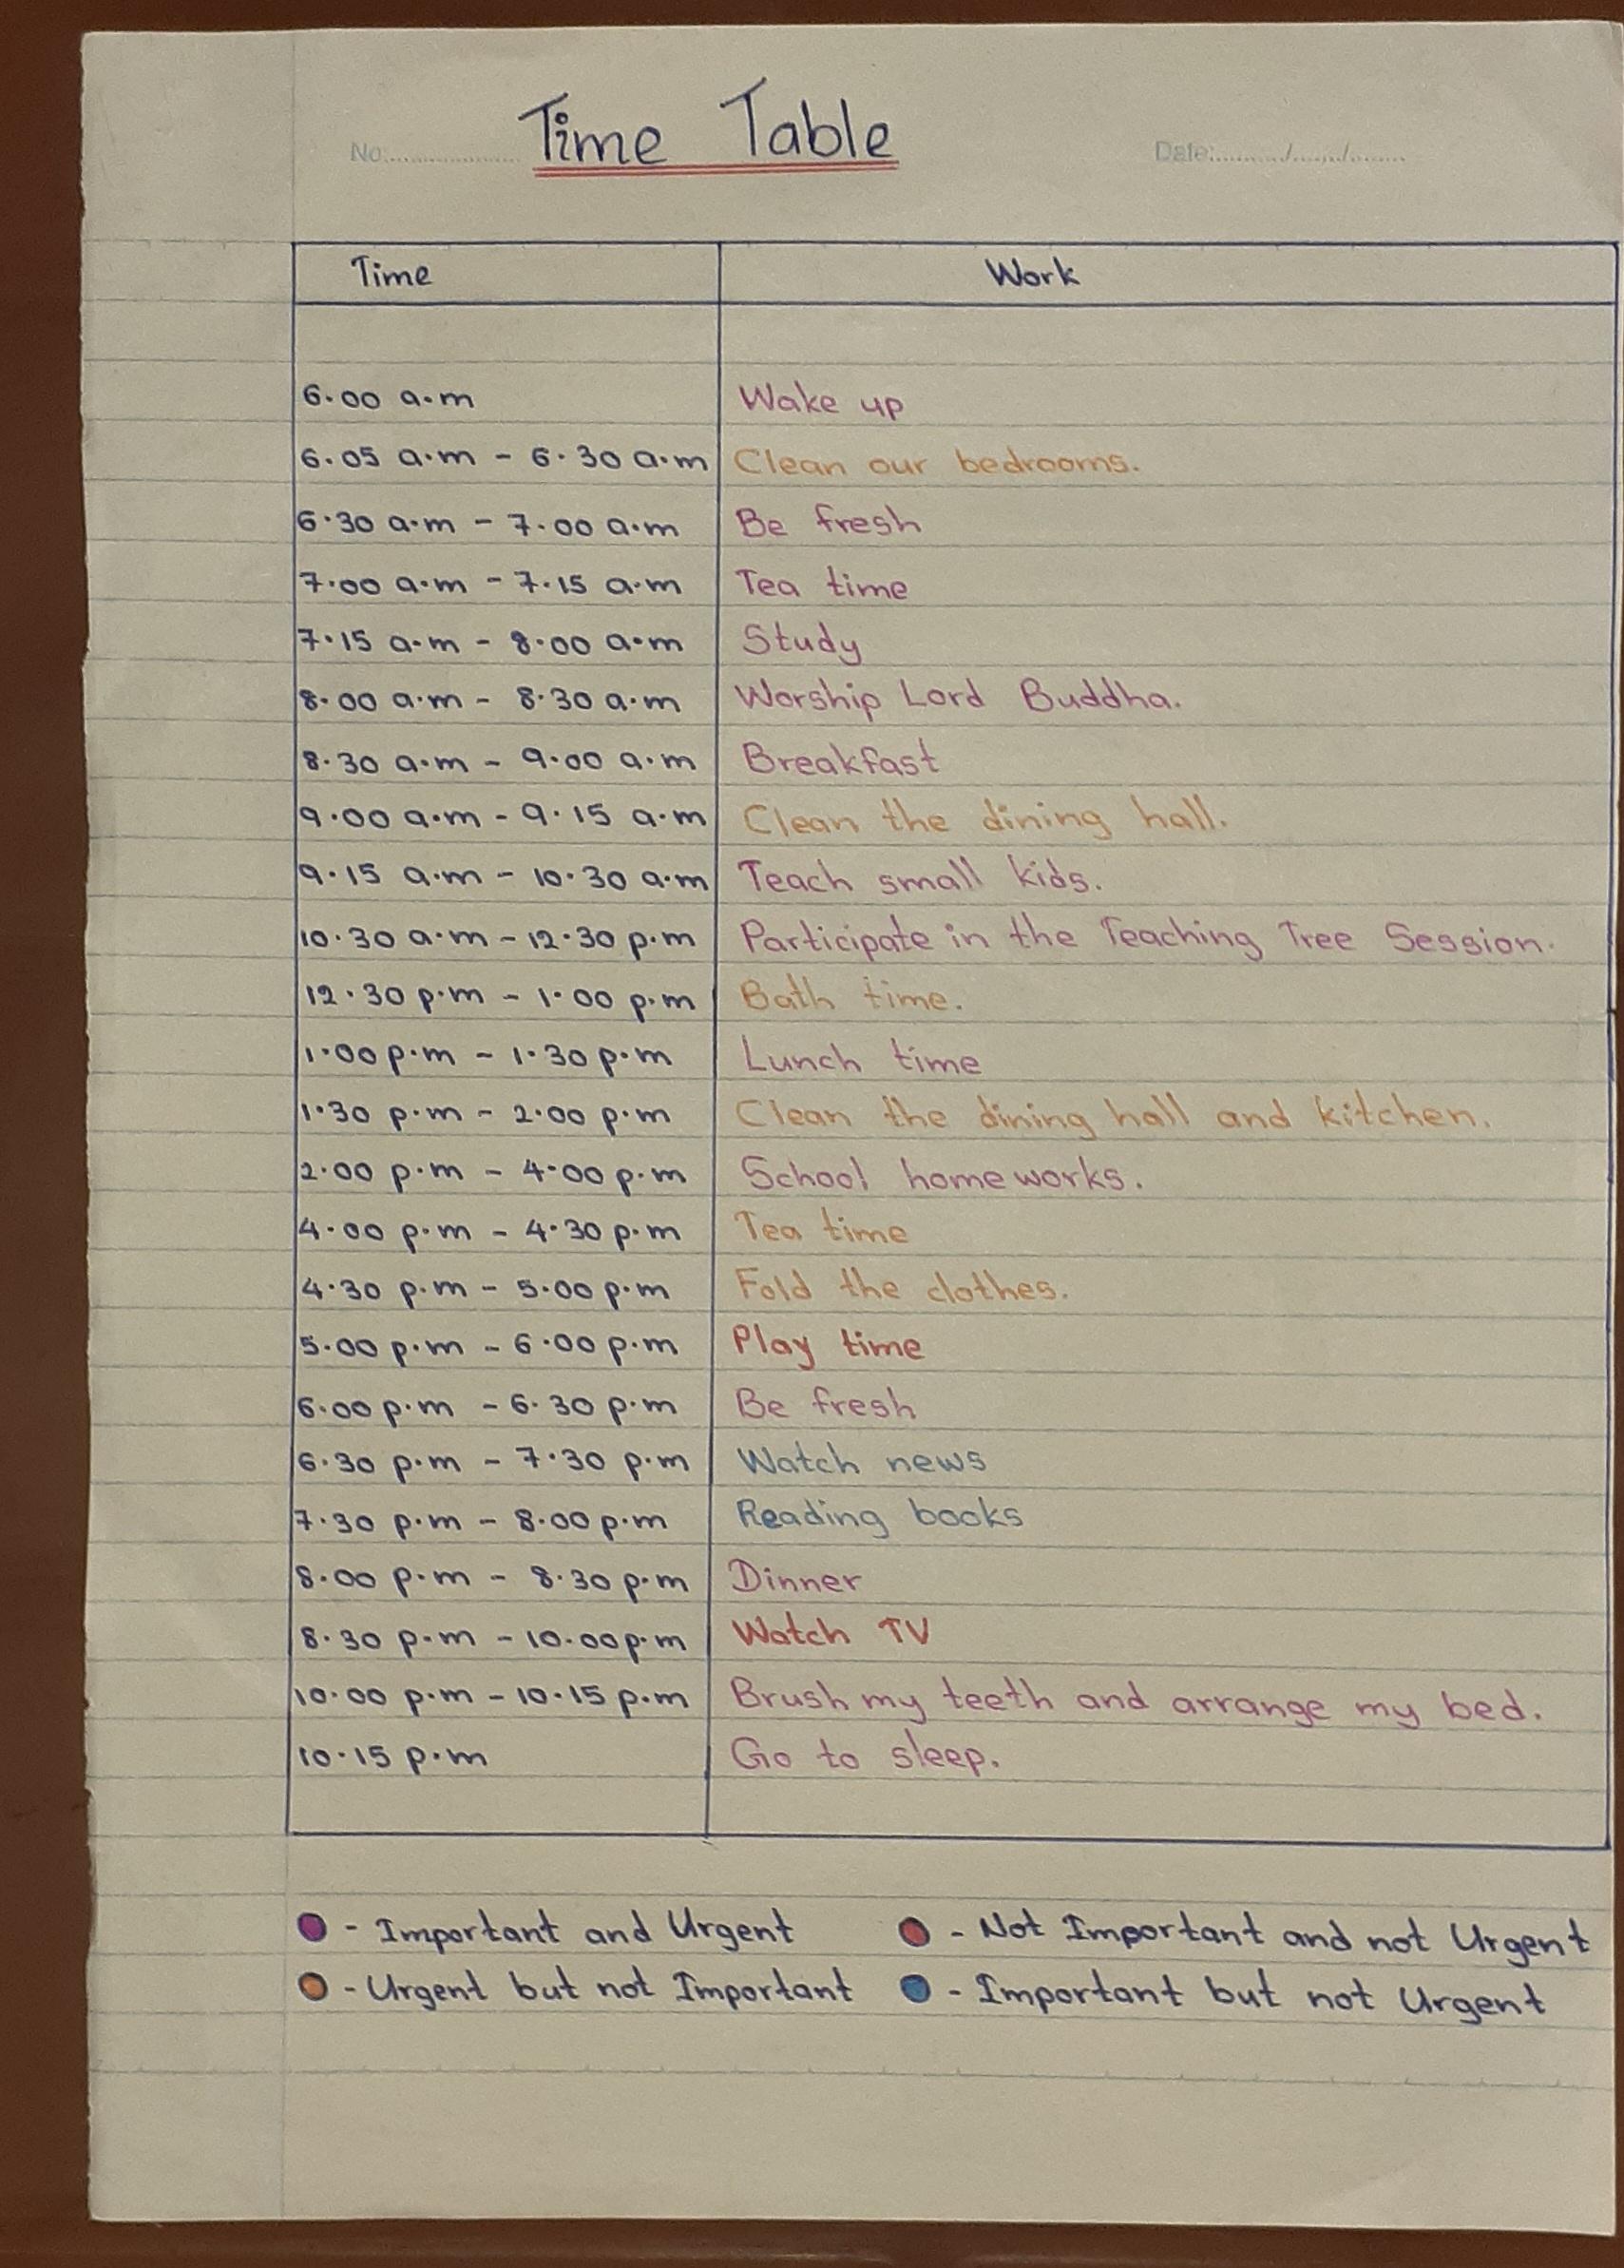 Time Table
No:.................. Date:........../......./.......
Time Work
6.00 a.m Wake up
6.05 a.m - 6.30 a.m Clean our bedrooms.
6.30 a.m - 7.00 a.m Be fresh
7.00 a.m - 7.15 a.m Tea time
7.15 a.m - 8.00 a.m Study
8.00 a.m - 8.30 a.m Worship Lord Buddha.
8.30 a.m - 9.00 a.m Breakfast
9.00 a.m - 9.15 a.m Clean the dining hall.
9.15 a.m - 10.30 a.m Teach small kids.
10.30 a.m - 12.30 p.m Participate in the Teaching Tree Session.
12.30 p.m - 1.00 p.m Bath time.
1.00 p.m - 1.30 p.m Lunch time
1.30 p.m - 2.00 p.m Clean the dining hall and kitchen.
2.00 p.m - 4.00 p.m School homeworks.
4.00 p.m - 4.30 p.m Tea time
4.30 p.m - 5.00 p.m Fold the clothes.
5.00 p.m - 6.00 p.m Play time
6.00 p.m - 6.30 p.m Be fresh
6.30 p.m - 7.30 p.m Watch news
7.30 p.m - 8.00 p.m Reading books
8.00 p.m - 8.30 p.m Dinner
8.30 p.m - 10.00 p.m Watch TV
10.00 p.m - 10.15 p.m Brush my teeth and arrange my bed.
10.15 p.m Go to sleep.
- Important and Urgent - Not Important and not Urgent
- Urgent but not Important - Important but not Urgent